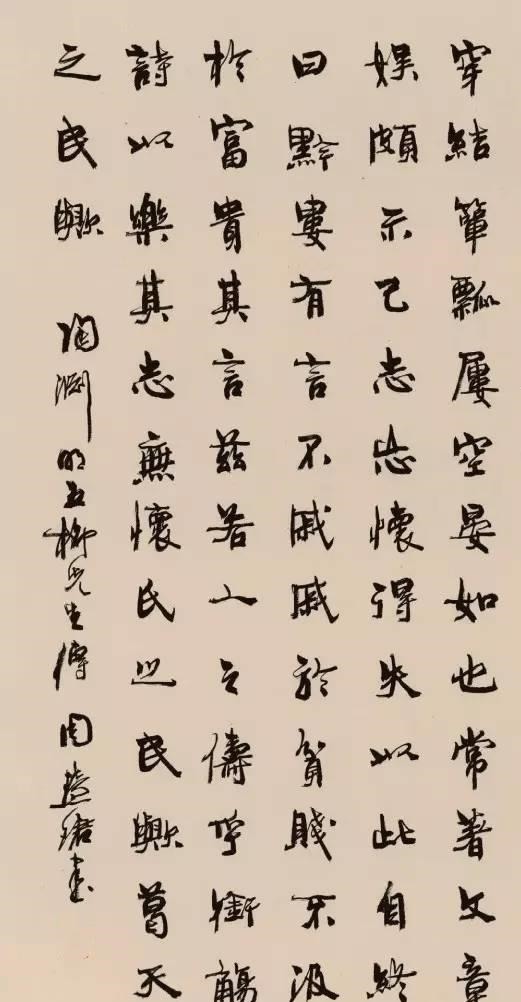 穿結簞瓢屢空晏如也常著文章
娛頗示己志忘懷得失以此自終
曰黔婁有言不戚戚於貧賤不汲
於富貴其言茲若人之儔乎銜觴
詩以樂其志無懷氏之民歟葛天
之民歟 陶淵明五柳先生傳 周慧珺書